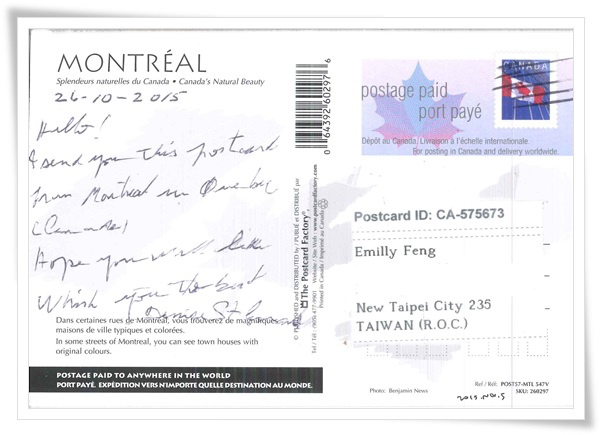 MONTRÉAL
Splendeurs naturelles du Canada • Canada's Natural Beauty
26-10-2015
Hello!
I send you this postcard
from Montreal in Quebec
(Canada)
Hope you will like
Whish you the best
Dans certaines rues de Montréal, vous trouverez de magnifiques
maisons de ville typiques et colorées.
In some streets of Montreal, you can see town houses with
original colours.
POSTAGE PAID TO ANYWHERE IN THE WORLD
PORT PAYÉ. EXPÉDITION VERS N'IMPORTE QUELLE DESTINATION AU MONDE.
0 64392 60297 6
PUBLISHED and DISTRIBUTED by / PUBLIÉ et DISTRIBUÉ par
The Postcard Factory
Tel / Tél : (905) 477-9901 Website / Site Web - www.postcardfactory.com
Printed in Canada / Imprimé au Canada
postage paid
port payé
CANADA
Dépôt au Canada. Livraison à l'échelle internationale.
For posting in Canada and delivery worldwide.
Postcard ID: CA-575673
Emilly Feng
New Taipei City 235
TAIWAN (R.O.C.)
Photo: Benjamin News
Ref / Réf: POST57-MTL 547V
SKU: 260297
2015.NOV.5